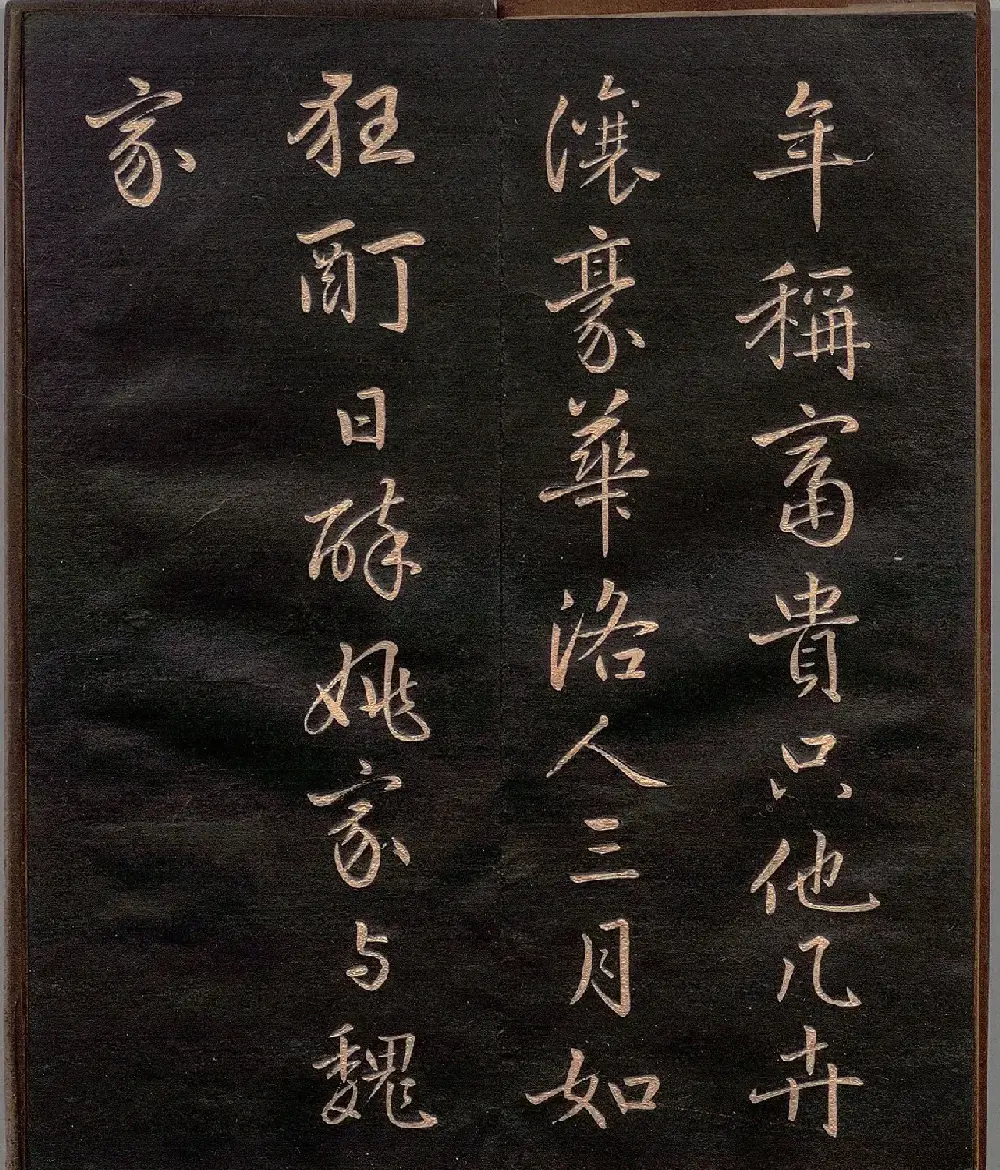 年稱富貴只他凡卉
瀼豪華洛人三月如
狂酊日醉姚家与魏
家